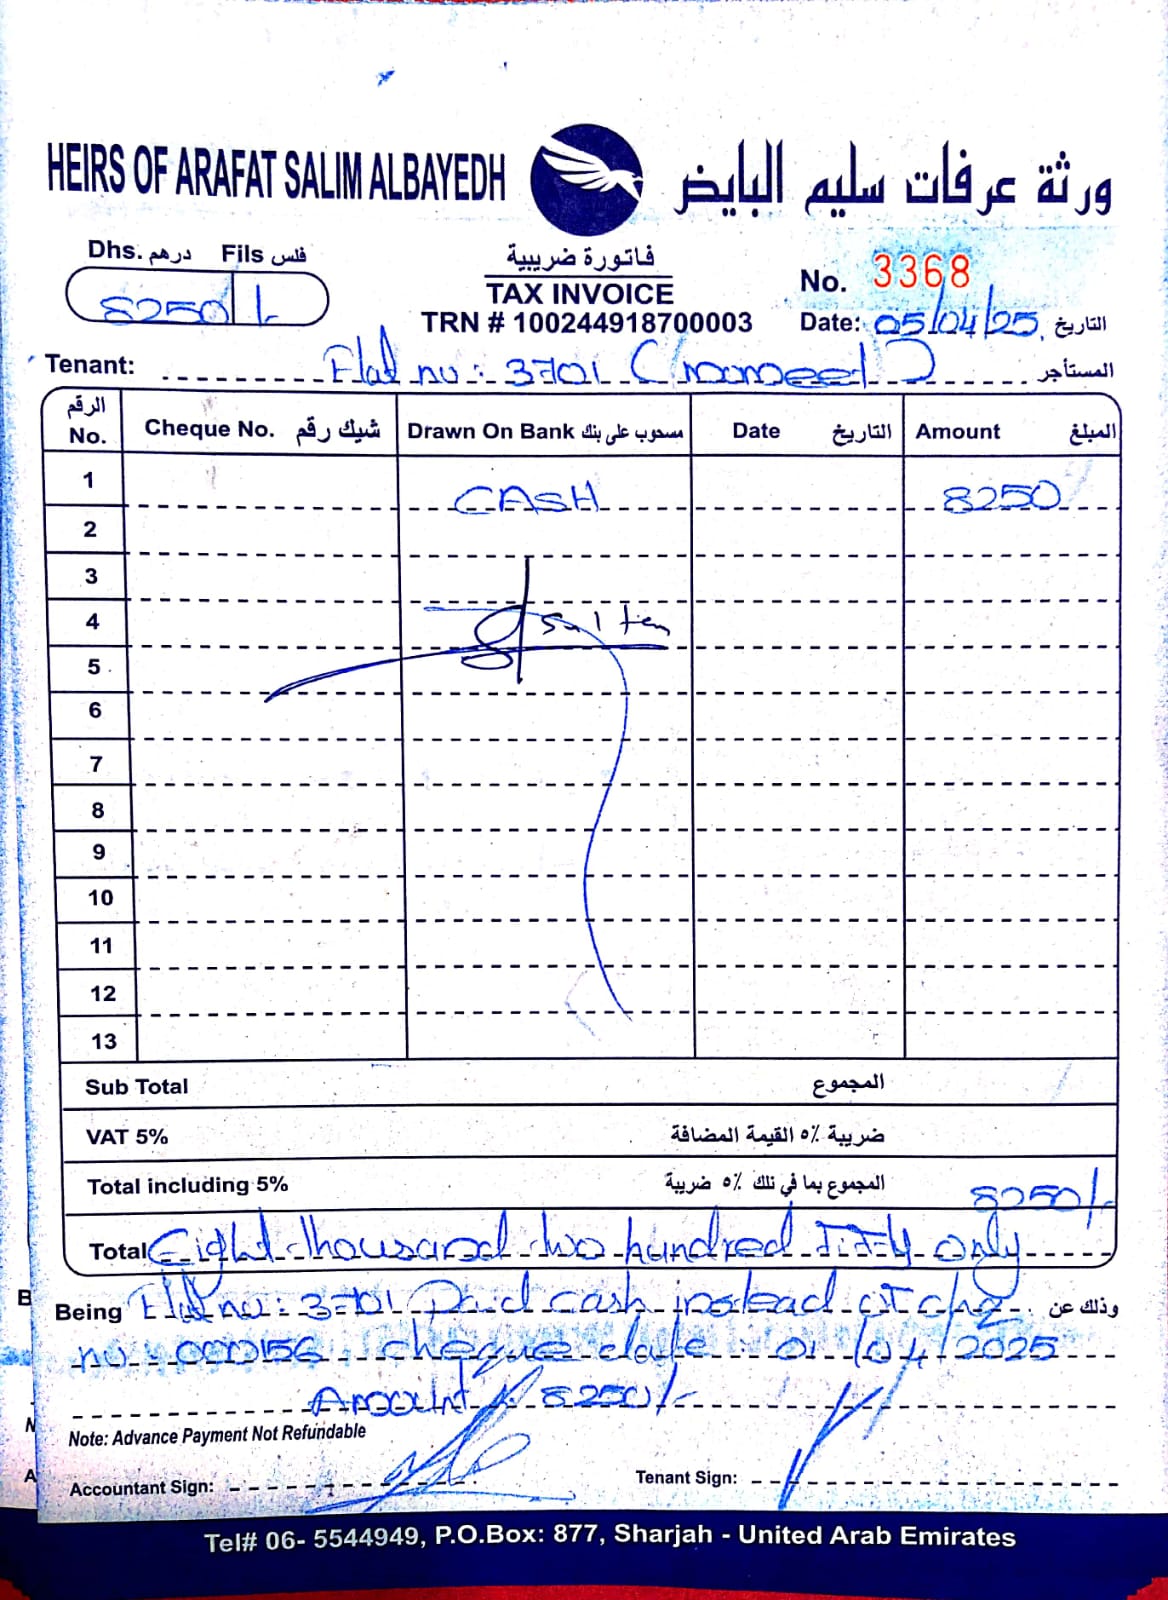 HEIRS OF ARAFAT SALIM ALBAYEDH ورثة عرفات سليم البايض
Dhs. درهم Fils فلس
8250/-
فاتورة ضريبية
TAX INVOICE
TRN # 100244918700003
No. 3368
Date: 05/04/25 التاريخ
Tenant: Flat no: 3701 المستأجر
الرقم No. Cheque No. شيك رقم Drawn On Bank مسحوب على بنك Date التاريخ Amount المبلغ
1 CASH 8250
2
3
4
5
6
7
8
9
10
11
12
13
Sub Total المجموع
VAT 5% ضريبة ٥٪ القيمة المضافة
Total including 5% المجموع بما في تلك ٥٪ ضريبة 8250/-
Total Eight thousand two hundred fifty only
Being Flat no: 3701 Paid cash instead of chq وذلك عن
no: 000156 cheque date: 01/04/2025
Amount 8250/-
Note: Advance Payment Not Refundable
Accountant Sign: Tenant Sign:
Tel# 06- 5544949, P.O.Box: 877, Sharjah - United Arab Emirates